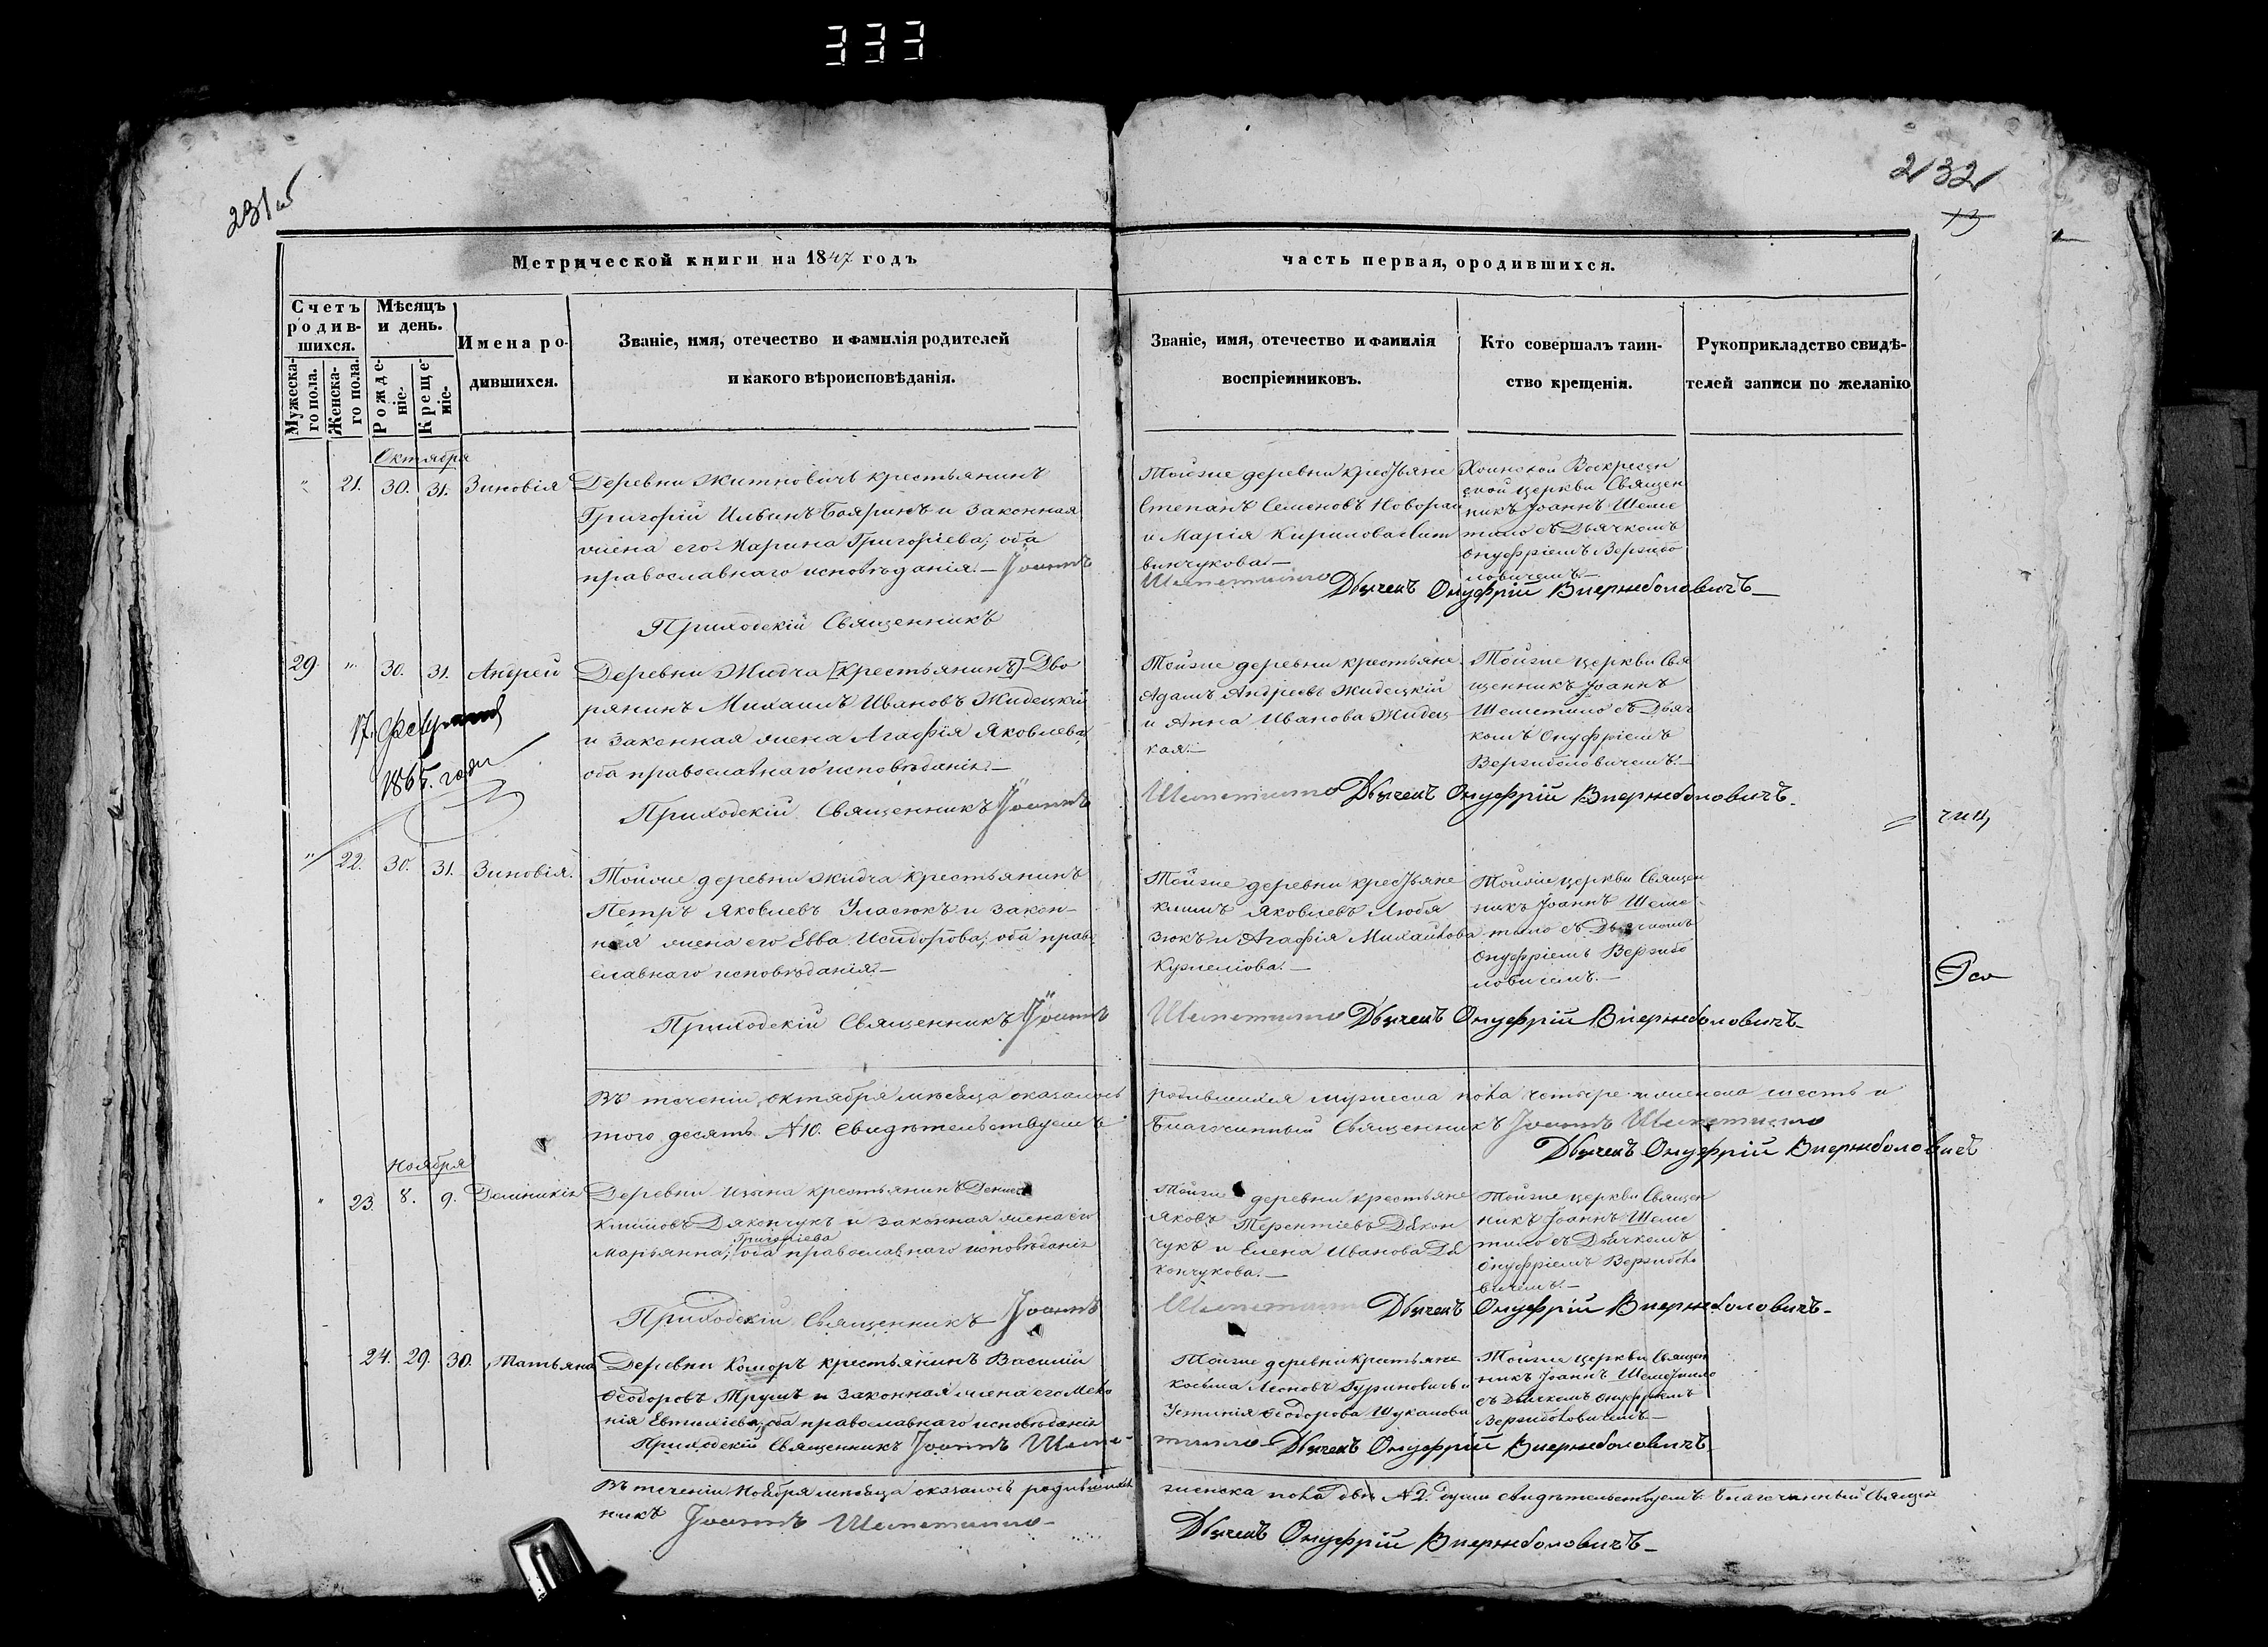 333
231 об
232
13
Метрической книги на 1847 годъ
часть первая, ородившихся.
Счетъ родив-
шихся.
Мужеска-
го пола.
Женска-
го пола.
Мѣсяцъ
и день.
Рожде-
ніе.
Креще-
ніе.
Имена ро-
дившихся.
Званіе, имя, отечество и фамилія родителей
и какого вѣроисповѣданія.
Званіе, имя, отечество и фамилія
воспріемниковъ.
Кто совершалъ таин-
ство крещенія.
Рукоприкладство свидѣ-
телей записи по желанію
Октября
" 21. 30. 31. Зиновія
Деревни Житновичъ крестьянинъ
Григорій Ильинъ Бояринъ и законная
жена его Марина Григорьева; оба
православнаго исповѣданія.— Іоаннъ
Приходскій Священникъ
Тойже деревни крестьяне
Степанъ Семеновъ
и Марія Кирилова Лит
винчукова.—
Шеметилло Дьячекъ Онуфрій Вержболовичъ
Воскресен
ской церкви Священ
никъ Іоаннъ Шеме
тило съ Дьячкомъ
Онуфріемъ Вержбо
ловичемъ.—
29. " 30. 31. Андрей
17. февраля
1865. года
Деревни Жидча [крестьянинъ] Дво
рянинъ Михаилъ Ивановъ Жидецкій
и законная жена Агафія Яковлева
оба православнаго исповѣданія.—
Приходскій Священникъ Іоаннъ
Тойже деревни крестьяне
Адамъ Андреевъ Жидецкій
и Анна Иванова Жидец
кая.—
Шеметилло Дьячекъ Онуфрій Вержболовичъ.
Тойже церкви Свя
щенникъ Іоаннъ
Шеметило съ Дьяч
комъ Онуфріемъ
Вержболовичемъ.—
" 22. 30. 31. Зиновія.
Тойже деревни Жидча крестьянинъ
Петръ Яковлевъ Уласюкъ и закон-
ная жена его Евва Исидорова; оба право
славнаго исповѣданія.—
Приходскій Священникъ Іоаннъ
Тойже деревни крестьяне
Климъ Яковлевъ Любя
зюкъ и Агафія Михайлова
Шеметилло Дьячекъ Онуфрій Вержболовичъ.
Тойже церкви Священ
никъ Іоаннъ Шеме-
тило съ Дьячкомъ
Онуфріемъ Вержбо
ловичемъ.—
Въ теченіи октября мѣсяца оказалось родившихся мужеска пола четыре и женска шесть и
того десять №10. Свидѣтельствуемъ Благочинный Священникъ Іоаннъ Шеметилло
Дьячекъ Онуфрій Вержболовичъ
Ноября
" 23. 8. 9. Домникія
Деревни крестьянинъ Денисъ
Климовъ Дякончукъ и законная жена его
Григорьева
Марьянна; оба православнаго исповѣданія
Приходскій Священникъ Іоаннъ
Тойже деревни крестьяне
Яковъ Терентіевъ Дякон
чукъ и Елена Иванова Дя
кончукова.—
Шеметилло Дьячекъ Онуфрій Вержболовичъ.
Тойже церкви Священ
никъ Іоаннъ Шеме
тило съ Дьячкомъ
Онуфріемъ Вержболо
вичемъ.—
24. 29. 30. Татьяна
Деревни Коморъ крестьянинъ Василій
Ѳеодоровъ Трушъ и законная жена его Мела
нія Евтихіева; оба православнаго исповѣданія
Приходскій Священникъ Іоаннъ Шеме-
Тойже деревни крестьяне
Косьма Леоновъ Гуриновичъ и
Устинія Ѳеодорова Шуканова
тилло Дьячекъ Онуфрій Вержболовичъ.
Тойже церкви Священ
никъ Іоаннъ Шеметило
съ Дьячкомъ Онуфріемъ
Вержболовичемъ.—
Въ теченіи Ноября мѣсяца оказалось родившихся женска пола двѣ №2. души свидѣтельствуемъ. Благочинный Священ
никъ Іоаннъ Шеметилло
Дьячекъ Онуфрій Вержболовичъ